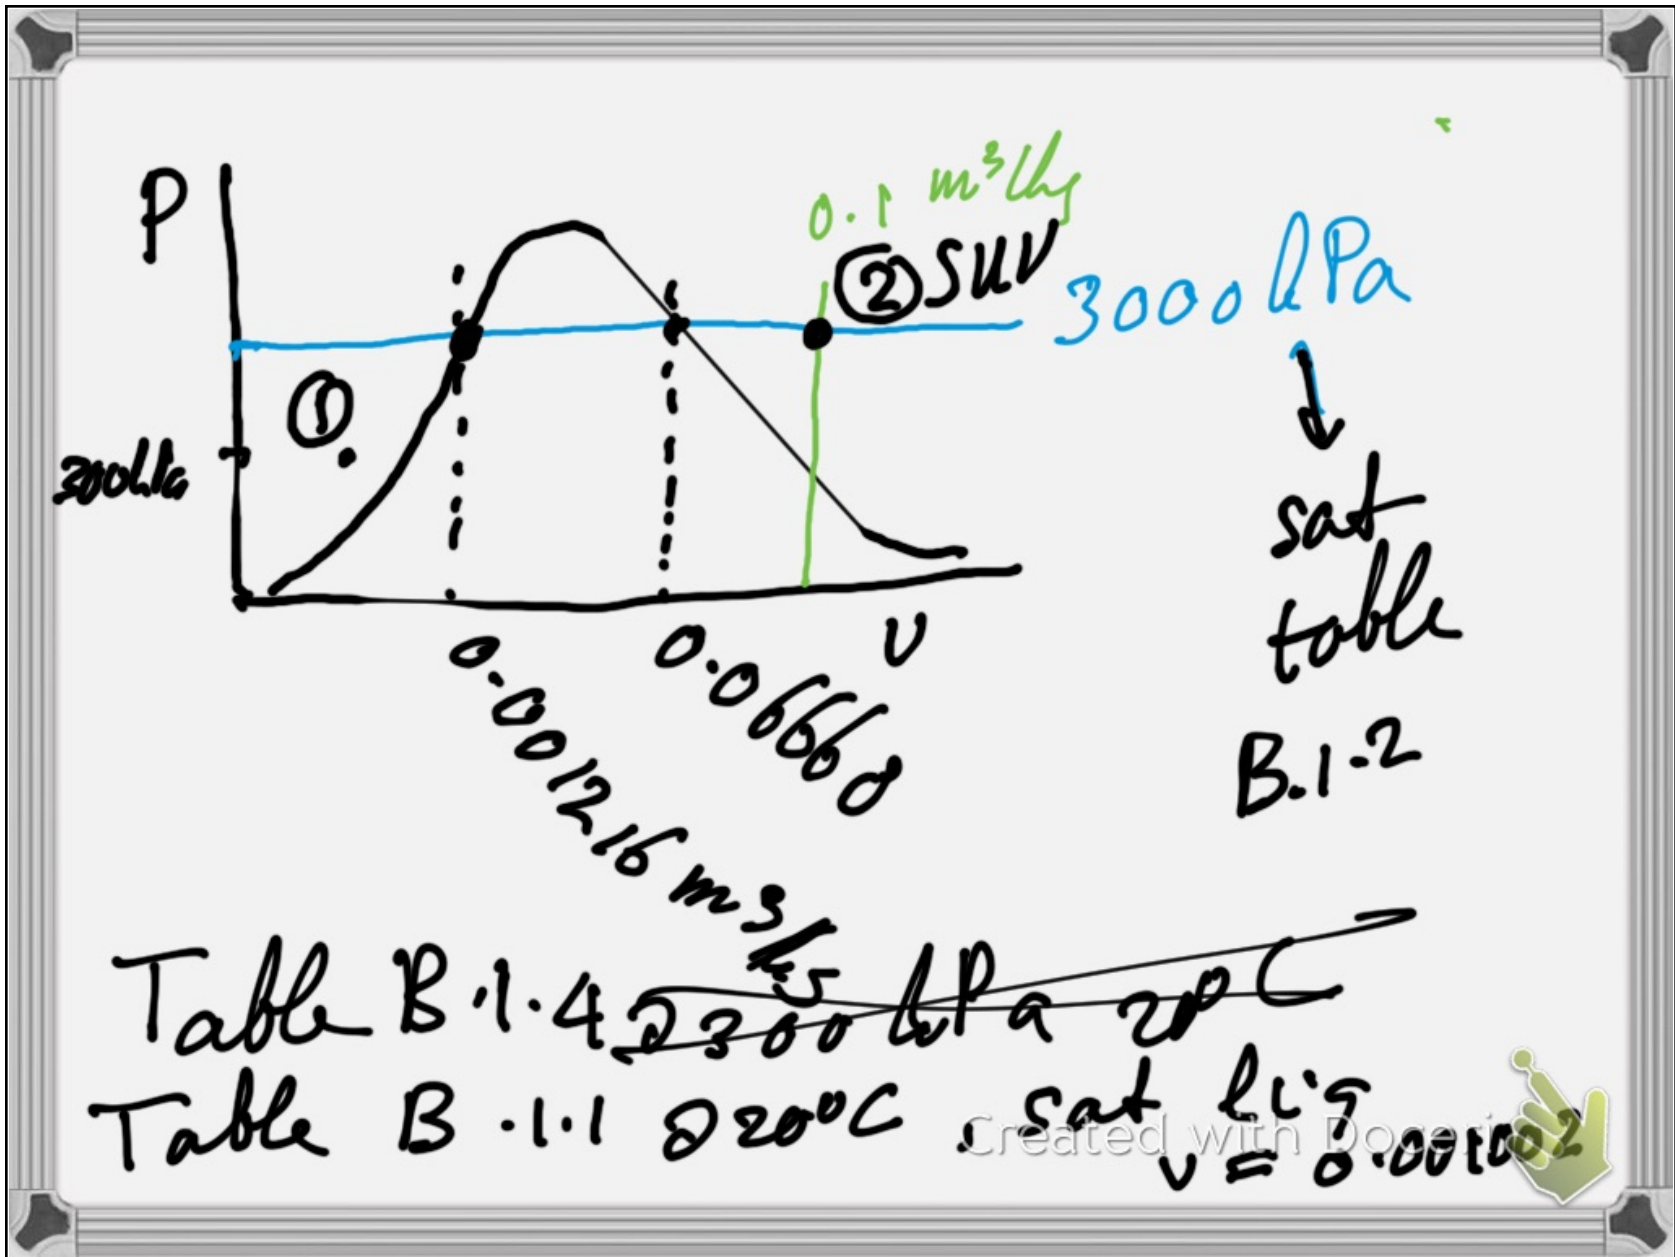 P
0.1 m³/kg
② SUV
3000 kPa
①
300kPa
sat
table
B.1.2
v
0.001216 m3/kg
0.06668
Table B.1.4 @ 300 kPa 20°C
Table B.1.1 @ 20°C , sat liq
v = 0.001002
Created with Doceri